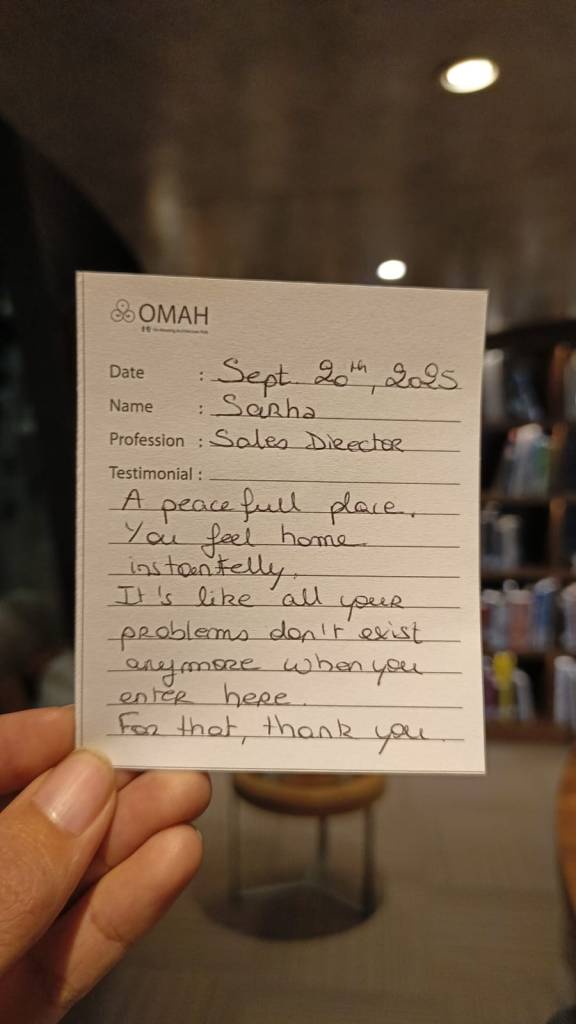 OMAH
Date : Sept 20th, 2025
Name : Sarha
Profession : Sales Director
Testimonial :
A peacefull place.
You feel home
instantelly.
It's like all your
problems don't exist
anymore when you
enter here.
For that, thank you.